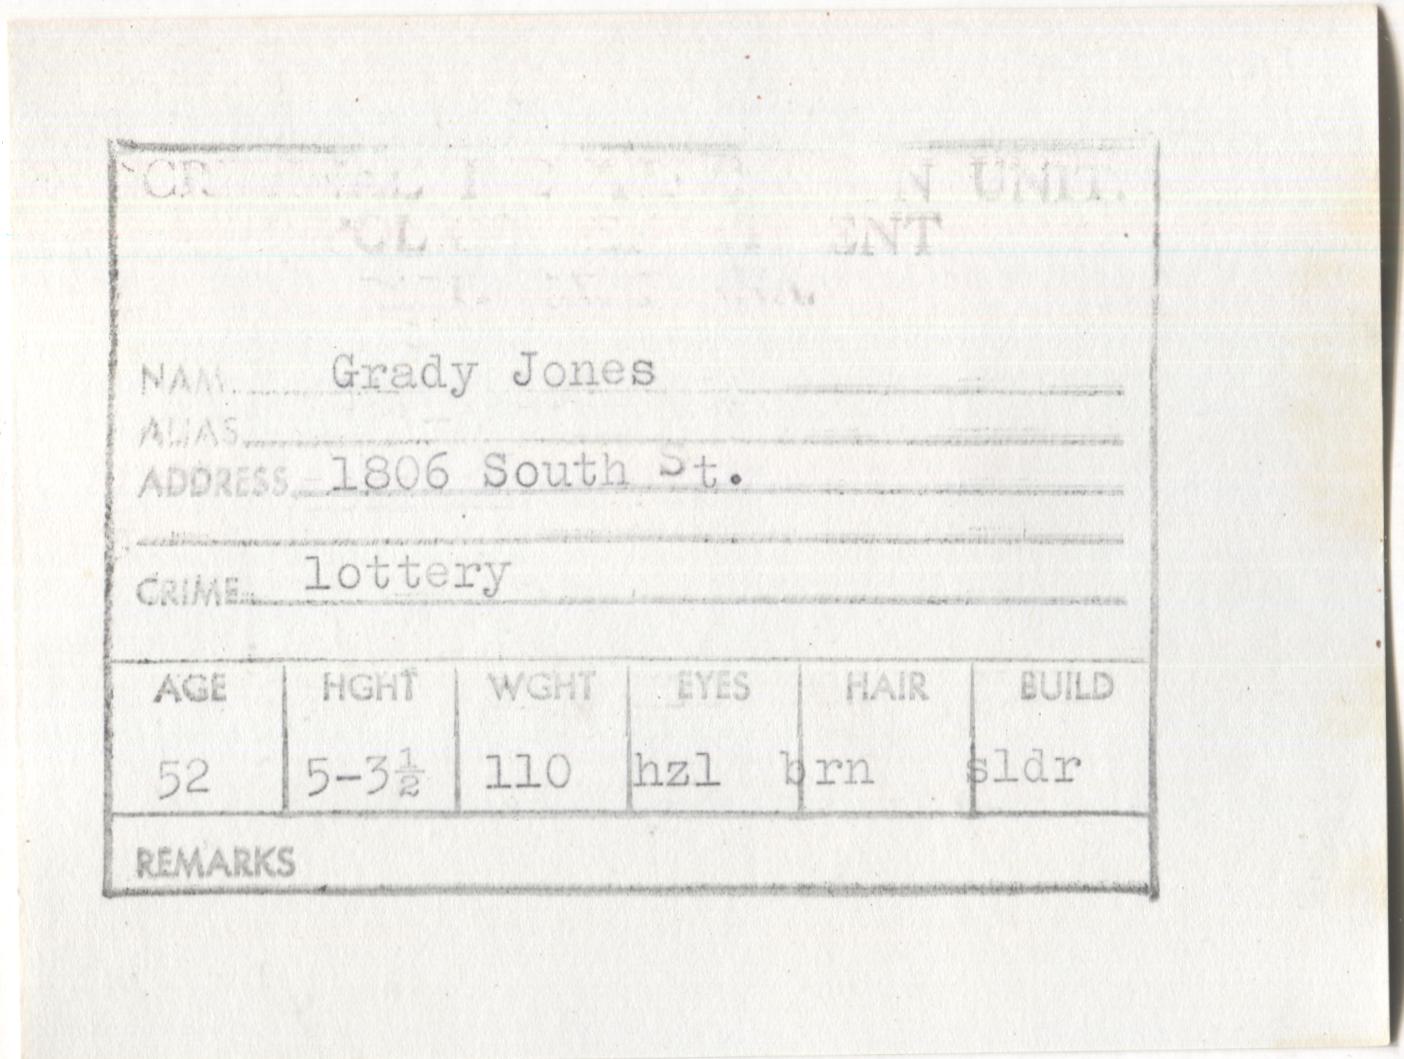 UNIT.
NAM
Grady Jones
ALIAS
ADDRESS 1806 South St.
CRIME lottery
AGE HGHT WGHT EYES HAIR BUILD
52 5-3½ 110 hzl brn sldr
REMARKS